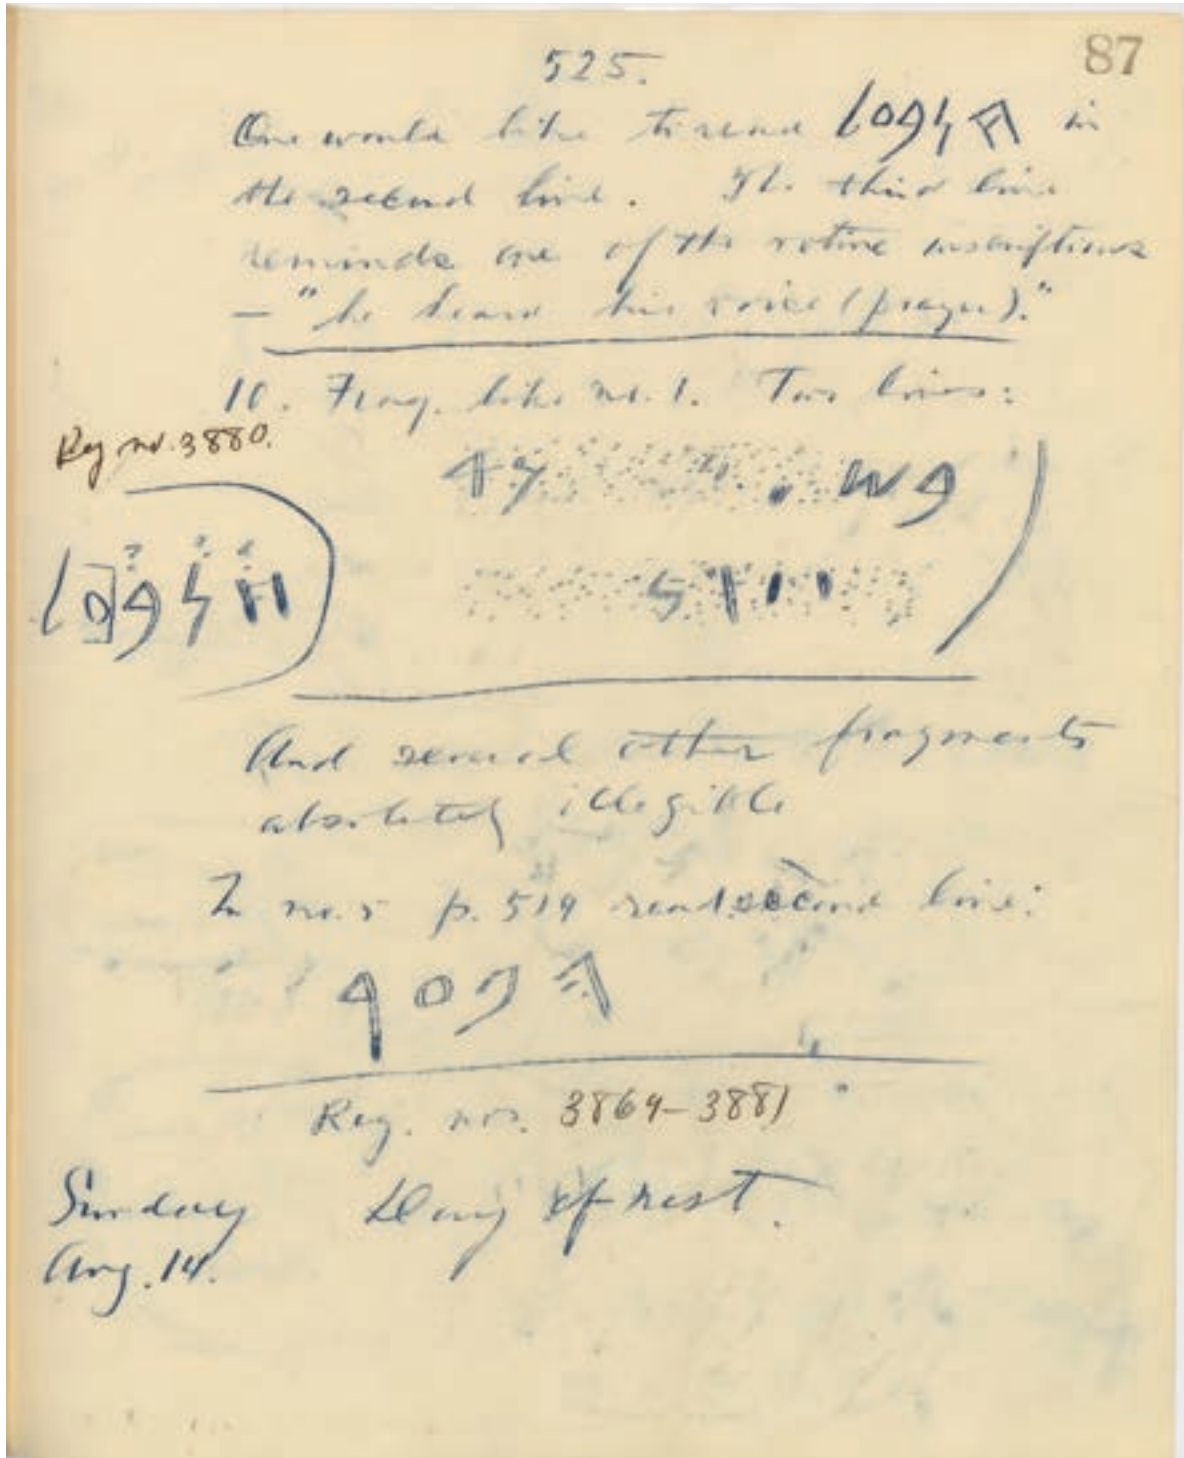 87
525.
One would like to read in
the second line. The third line
reminds one of the votive inscriptions
— "he heard his voice (prayer)."
10. Frag. like no. 1. Two lines:
Reg no. 3880.
And several other fragments
absolutely illegible
In no. 5 p. 519 read second line:
Reg. nos. 3864–3881
Sunday Day of rest.
Aug. 14.